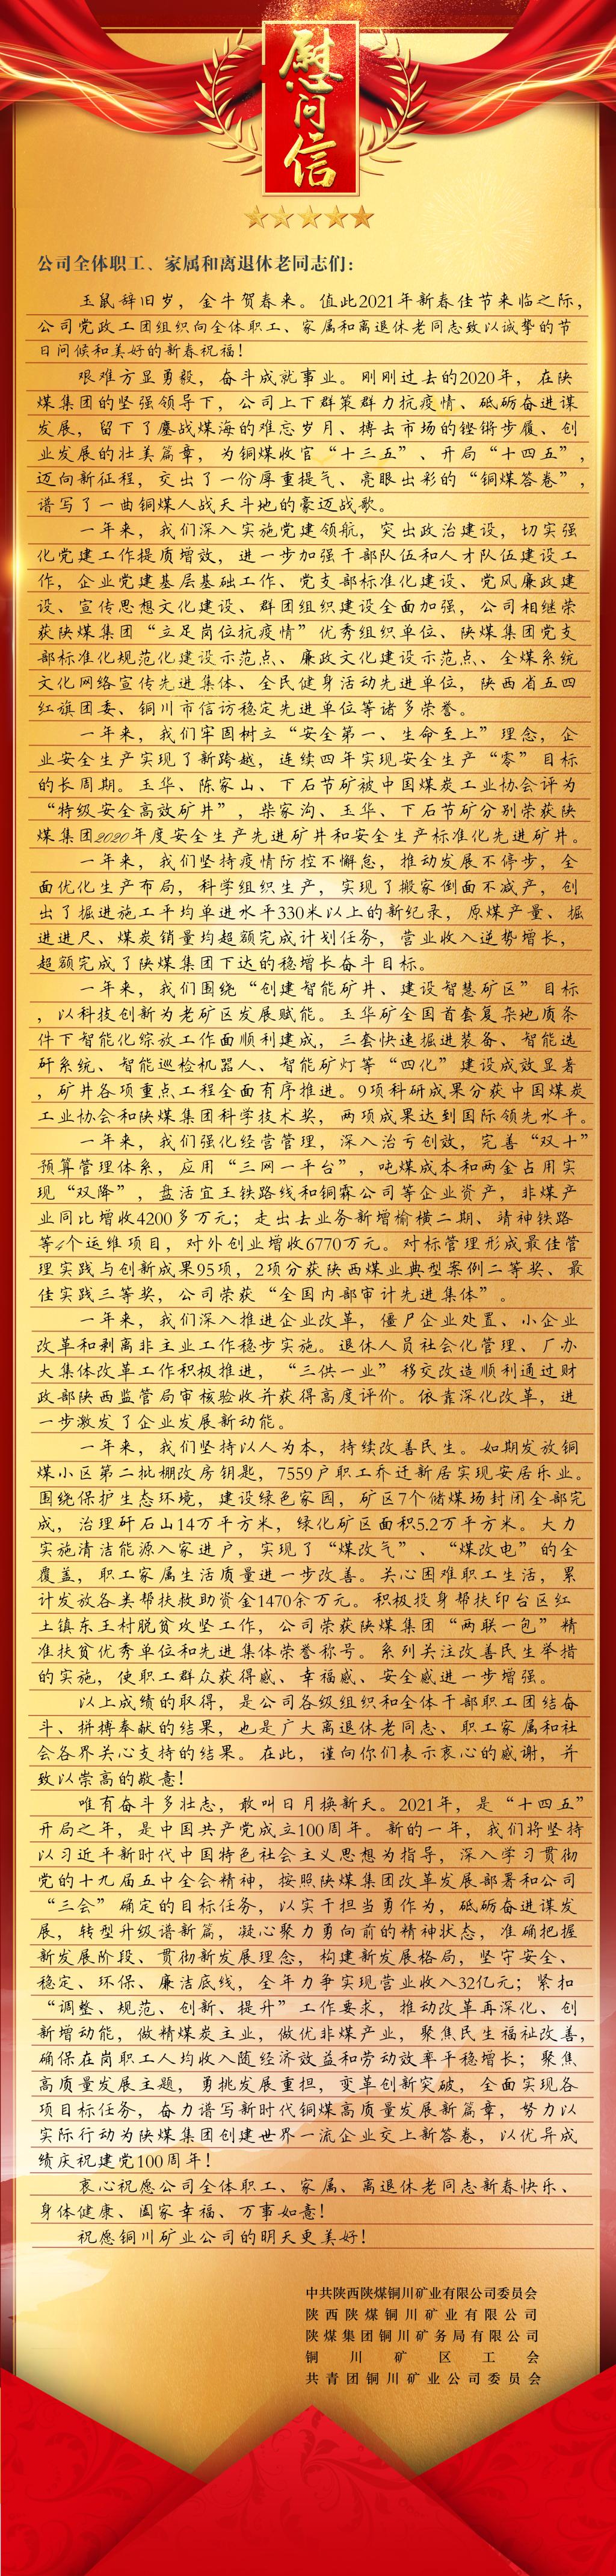 慰问信
公司全体职工、家属和离退休老同志们：
玉鼠辞旧岁，金牛贺春来。值此2021年新春佳节来临之际，
公司党政工团组织向全体职工、家属和离退休老同志致以诚挚的节
日问候和美好的新春祝福！
艰难方显勇毅，奋斗成就事业。刚刚过去的2020年，在陕
煤集团的坚强领导下，公司上下群策群力抗疫情、砥砺奋进谋
发展，留下了鏖战煤海的难忘岁月、搏击市场的铿锵步履、创
业发展的壮美篇章，为铜煤收官“十三五”、开局“十四五”，
迈向新征程，交出了一份厚重提气、亮眼出彩的“铜煤答卷”，
谱写了一曲铜煤人战天斗地的豪迈战歌。
一年来，我们深入实施党建领航，突出政治建设，切实强
化党建工作提质增效，进一步加强干部队伍和人才队伍建设工
作，企业党建基层基础工作、党支部标准化建设、党风廉政建
设、宣传思想文化建设、群团组织建设全面加强，公司相继荣
获陕煤集团“立足岗位抗疫情”优秀组织单位、陕煤集团党支
部标准化规范化建设示范点、廉政文化建设示范点、全煤系统
文化网络宣传先进集体、全民健身活动先进单位，陕西省五四
红旗团委、铜川市信访稳定先进单位等诸多荣誉。
一年来，我们牢固树立“安全第一、生命至上”理念，企
业安全生产实现了新跨越，连续四年实现安全生产“零”目标
的长周期。玉华、陈家山、下石节矿被中国煤炭工业协会评为
“特级安全高效矿井”，柴家沟、玉华、下石节矿分别荣获陕
煤集团2020年度安全生产先进矿井和安全生产标准化先进矿井。
一年来，我们坚持疫情防控不懈怠，推动发展不停步，全
面优化生产布局，科学组织生产，实现了搬家倒面不减产，创
出了掘进施工平均单进水平330米以上的新纪录，原煤产量、掘
进进尺、煤炭销量均超额完成计划任务，营业收入逆势增长，
超额完成了陕煤集团下达的稳增长奋斗目标。
一年来，我们围绕“创建智能矿井、建设智慧矿区”目标
，以科技创新为老矿区发展赋能。玉华矿全国首套复杂地质条
件下智能化综放工作面顺利建成，三套快速掘进装备、智能选
矸系统、智能巡检机器人、智能矿灯等“四化”建设成效显著
，矿井各项重点工程全面有序推进。9项科研成果分获中国煤炭
工业协会和陕煤集团科学技术奖，两项成果达到国际领先水平。
一年来，我们强化经营管理，深入治亏创效，完善“双十”
预算管理体系，应用“三网一平台”，吨煤成本和两金占用实
现“双降”，盘活宜王铁路线和铜霖公司等企业资产，非煤产
业同比增收4200多万元；走出去业务新增榆横二期、靖神铁路
等4个运维项目，对外创业增收6770万元。对标管理形成最佳管
理实践与创新成果95项，2项分获陕西煤业典型案例二等奖、最
佳实践三等奖，公司荣获“全国内部审计先进集体”。
一年来，我们深入推进企业改革，僵尸企业处置、小企业
改革和剥离非主业工作稳步实施。退休人员社会化管理、厂办
大集体改革工作积极推进，“三供一业”移交改造顺利通过财
政部陕西监管局审核验收并获得高度评价。依靠深化改革，进
一步激发了企业发展新动能。
一年来，我们坚持以人为本，持续改善民生。如期发放铜
煤小区第二批棚改房钥匙，7559户职工乔迁新居实现安居乐业。
围绕保护生态环境，建设绿色家园，矿区7个储煤场封闭全部完
成，治理矸石山14万平方米，绿化矿区面积5.2万平方米。大力
实施清洁能源入家进户，实现了“煤改气”、“煤改电”的全
覆盖，职工家属生活质量进一步改善。关心困难职工生活，累
计发放各类帮扶救助资金1470余万元。积极投身帮扶印台区红
土镇东王村脱贫攻坚工作，公司荣获陕煤集团“两联一包”精
准扶贫优秀单位和先进集体荣誉称号。系列关注改善民生举措
的实施，使职工群众获得感、幸福感、安全感进一步增强。
以上成绩的取得，是公司各级组织和全体干部职工团结奋
斗、拼搏奉献的结果，也是广大离退休老同志、职工家属和社
会各界关心支持的结果。在此，谨向你们表示衷心的感谢，并
致以崇高的敬意！
唯有奋斗多壮志，敢叫日月换新天。2021年，是“十四五”
开局之年，是中国共产党成立100周年。新的一年，我们将坚持
以习近平新时代中国特色社会主义思想为指导，深入学习贯彻
党的十九届五中全会精神，按照陕煤集团改革发展部署和公司
“三会”确定的目标任务，以实干担当勇作为，砥砺奋进谋发
展，转型升级谱新篇，凝心聚力勇向前的精神状态，准确把握
新发展阶段、贯彻新发展理念，构建新发展格局，坚守安全、
稳定、环保、廉洁底线，全年力争实现营业收入32亿元；紧扣
“调整、规范、创新、提升”工作要求，推动改革再深化、创
新增动能，做精煤炭主业，做优非煤产业，聚焦民生福祉改善，
确保在岗职工人均收入随经济效益和劳动效率平稳增长；聚焦
高质量发展主题，勇挑发展重担，变革创新突破，全面实现各
项目标任务，奋力谱写新时代铜煤高质量发展新篇章，努力以
实际行动为陕煤集团创建世界一流企业交上新答卷，以优异成
绩庆祝建党100周年！
衷心祝愿公司全体职工、家属、离退休老同志新春快乐、
身体健康、阖家幸福、万事如意！
祝愿铜川矿业公司的明天更美好！
中共陕西陕煤铜川矿业有限公司委员会
陕西陕煤铜川矿业有限公司
陕煤集团铜川矿务局有限公司
铜川矿区工会
共青团铜川矿业公司委员会